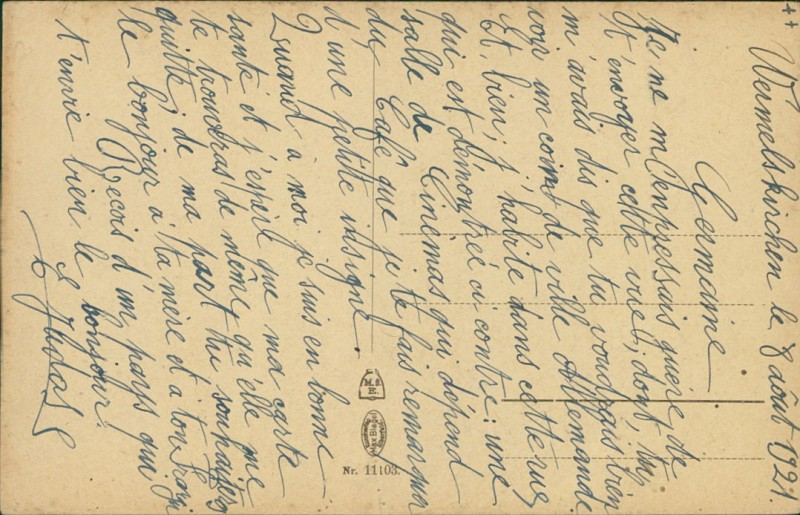 ++
Wermelskirchen le 8 août 1921.
Germaine
Je ne m'empressais guère de
t'envoyer cette vue; dont tu
m'avais dis que tu voudrais bien
voir un coins de ville Allemande
Et, bien; j'habite dans cette rue
qui est démontrée ci contre: une
salle de Cinémas qui dépend
du Café que je te fais remarquer
d'une petite insigne.
Quand à moi je suis en bonne
santé et j'espère que ma carte
te trouveras de même qu'elle me
quitte; de ma part tu souhaiteras
le bonjour à ta mère et à ton
Reçois d'un pays qui
t'envie bien le bonjour.
M.&
E.
Nr. 11103.